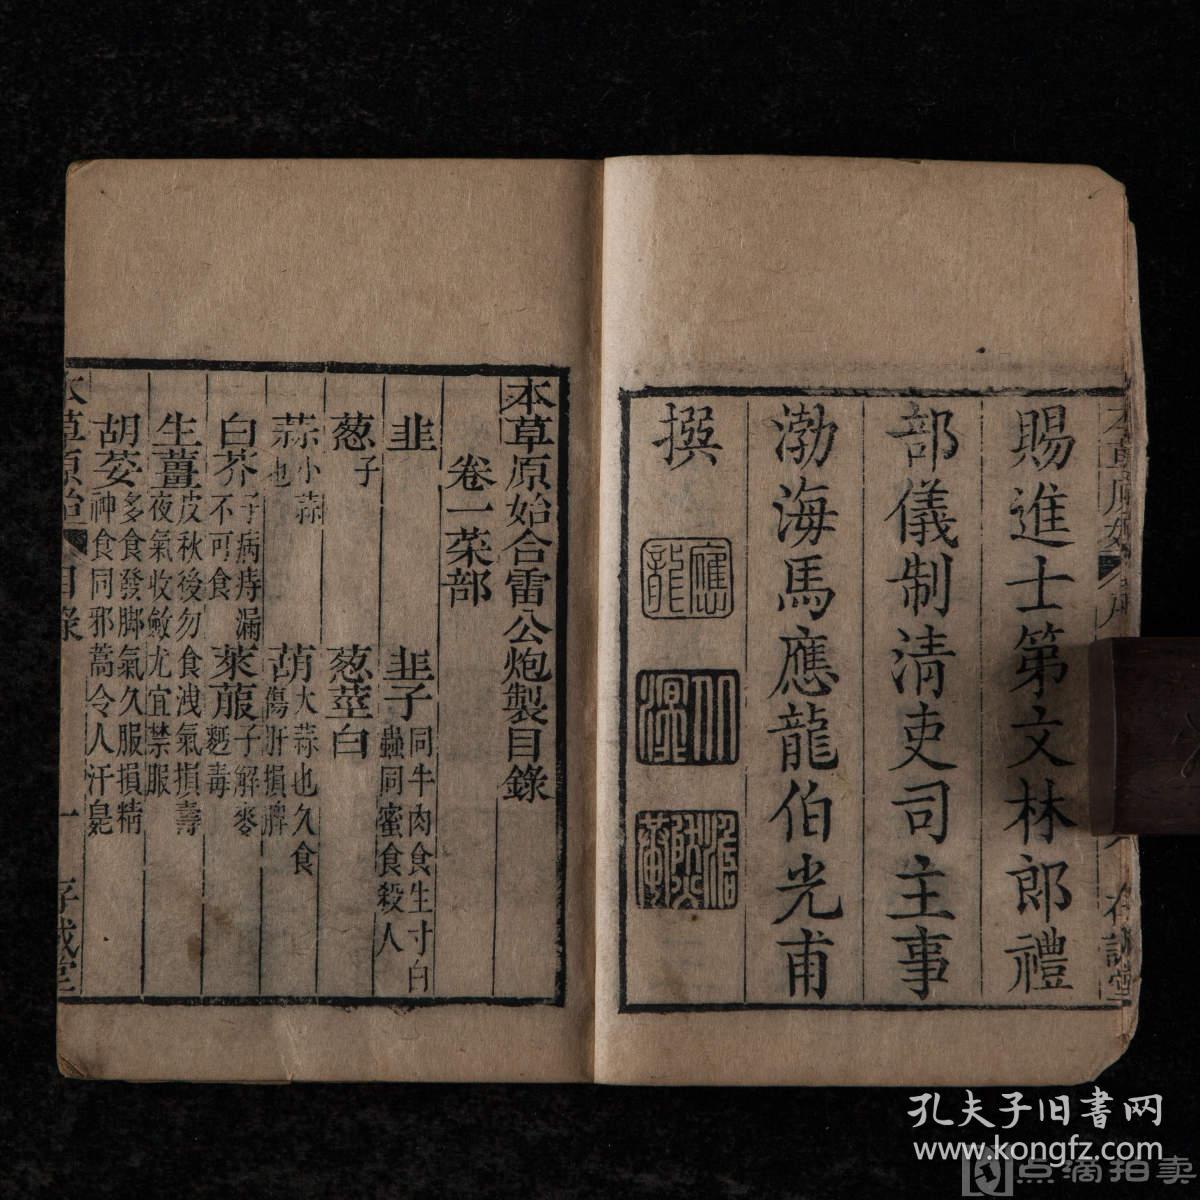 賜進士第文林郎禮
部儀制清吏司主事
渤海馬應龍伯光甫
撰
應龍
本草原始合雷公炮製目錄
卷一菜部
韭
韭子同牛肉食生寸白蟲同蜜食殺人
葱子
葱莖白
蒜小蒜也
葫大蒜也久食傷肝損脾
白芥子病痔漏不可食
萊菔子解麥麪毒
生薑皮秋後勿食洩氣損壽夜氣收斂尤宜禁服
胡荽多食發脚氣久服損精神食同邪蒿令人汗臭
本草原始
目錄
一
存誠堂
孔夫子旧書网
www.kongfz.com
点滴拍卖